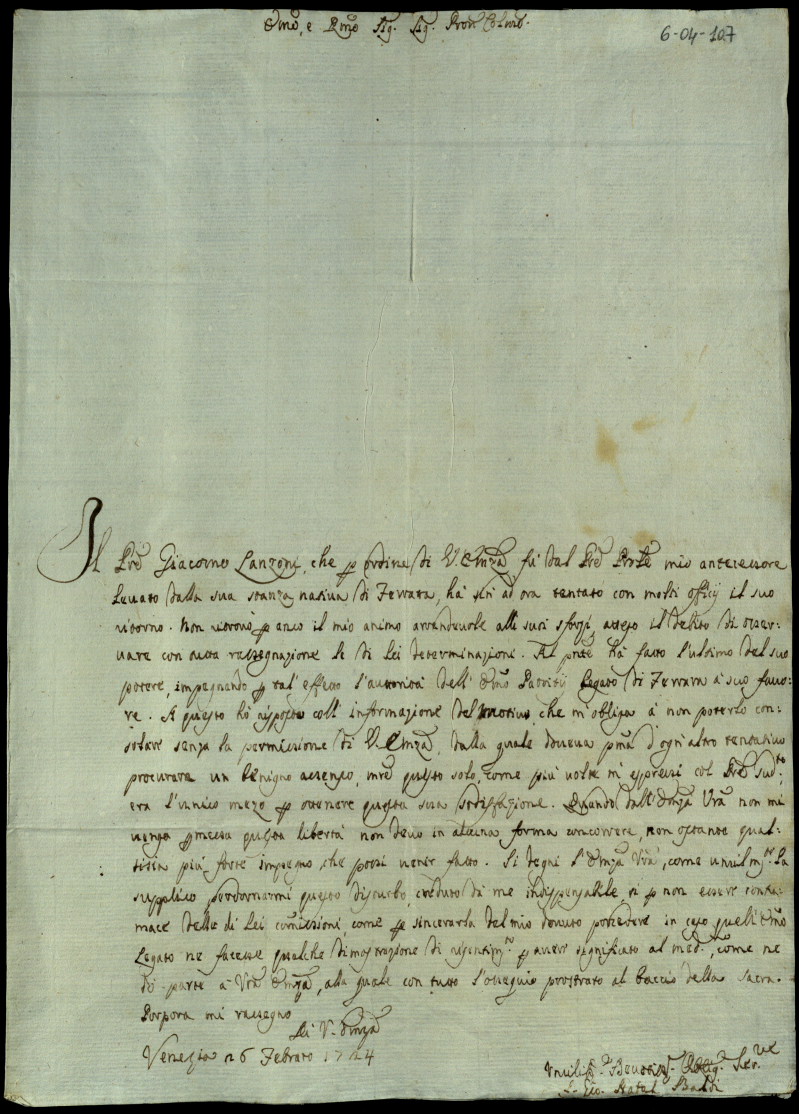 Emo, e Rmo Sig. Sig. Pron Colmo.
6-04-107
Il Prẽ Giacomo Lanzoni, che p ordine di V. Emza fù dal Prẽ Prore mio antecessore
levato dalla sua stanza nativa di Ferrara, hà sin ad ora tentato con molti officij il suo
ritorno. Non ritrovò p anco il mio animo arrendevole alli suoi sforzi, atteso il debito di osser-
vare con tutta rassegnazione le di Lei determinazioni. Al pnte hà fatto l'ultimo del suo
potere, impegnando p tal' effetto l'autorità dell' Emo Patritij Legato di Ferrara à suo favo-
re. A questo hò risposto coll' informazione del motivo che m'obliga à non poterlo con-
solare senza la permissione di V. Emza, dalla quale doveva pma d'ogn'altro tentativo
procurare un benigno assenso, mtre questo solo, come più volte m'espressi col Prẽ sudto,
era l'unico mezo p ottenere questa sua sodisfazione. Quando dall'Emza Vra non mi
venga pmessa questa libertà non devo in alcuna forma concorrere, non ostante qual-
sisia più forte impegno, che possi venir fatto. Si degni l'Emza Vra, come umilmte La
supplico perdonarmi questo disturbo, creduto da me indispensabile, sì p non essere contu-
mace delle di Lei comissioni, come p sincerarla del mio dovuto procedere in caso quell'Emo
Legato ne facesse qualche dimostrazione di risentimto p aver significato al med., come ne
dò parte à Vra Emza, alla quale con tutto l'ossequio prostrato al baccio della Sacra
Porpora mi rassegno
Di V. Emza
Venezia 26 Febraro 1724
Umiliss. Devotiss. Obblig. Ser.
F. Gio. Batt Baldi